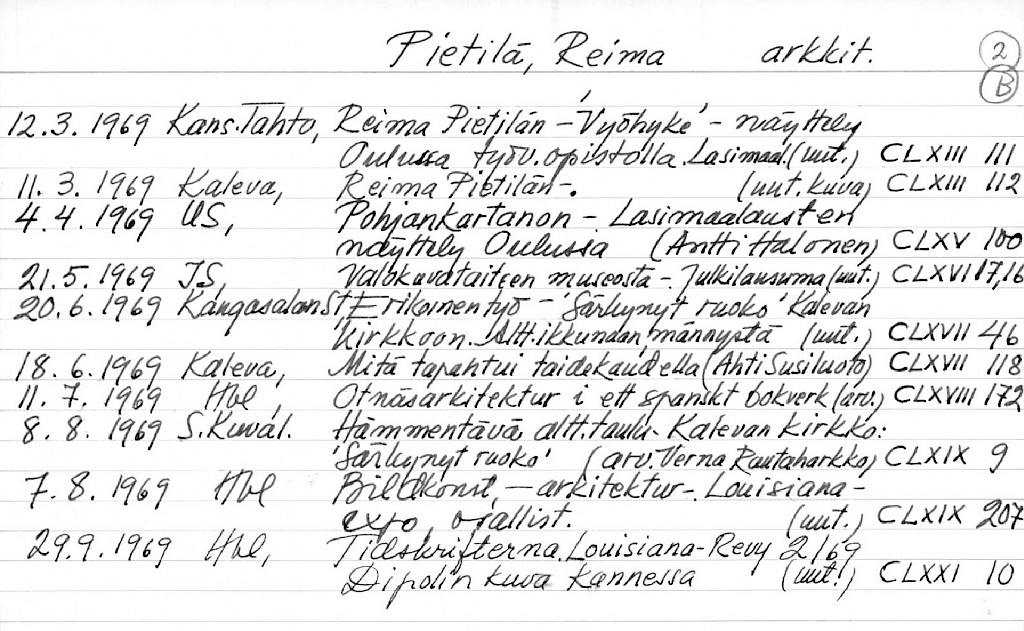 Pietilä, Reima arkkit. 2
B
12.3.1969 Kans.Tahto, Reima Pietilän - 'Vyöhyke' - näyttely
Oulussa työv.opistolla. Lasimaal. (uut.) CLXIII 111
11. 3. 1969 Kaleva, Reima Pietilän -. (uut. kuva) CLXIII 112
4. 4. 1969 US, Pohjankartanon - Lasimaalausten
näyttely Oulussa (Antti Halonen) CLXV 100
21.5. 1969 IS, Valokuvataiteen museosta - Julkilausuma (uut.) CLXVI 17,16
20.6.1969 Kangasalan St Erikoinen työ - 'Särkynyt ruoko' Kalevan
kirkkoon. Altt.ikkunaan männystä (uut.) CLXVII 46
18. 6. 1969 Kaleva, Mitä tapahtui taidekaudella (Ahti Susiluoto) CLXVII 118
11. 7. 1969 Hbl, Otnäsarkitektur i ett spanskt bokverk (arv.) CLXVIII 172
8. 8. 1969 S.Kuvál. Hämmentävä altt.taulu - Kalevan kirkko:
'Särkynyt ruoko' (arv. Verna Rautaharkko) CLXIX 9
7. 8. 1969 Hbl Bildkonst, - arkitektur -. Louisiana -
expo, osallist. (uut.) CLXIX 207
29.9.1969 Hbl, Tidskrifterna. Louisiana-Revy 2/69
Dipolin kuva kannessa (uut.) CLXXI 10